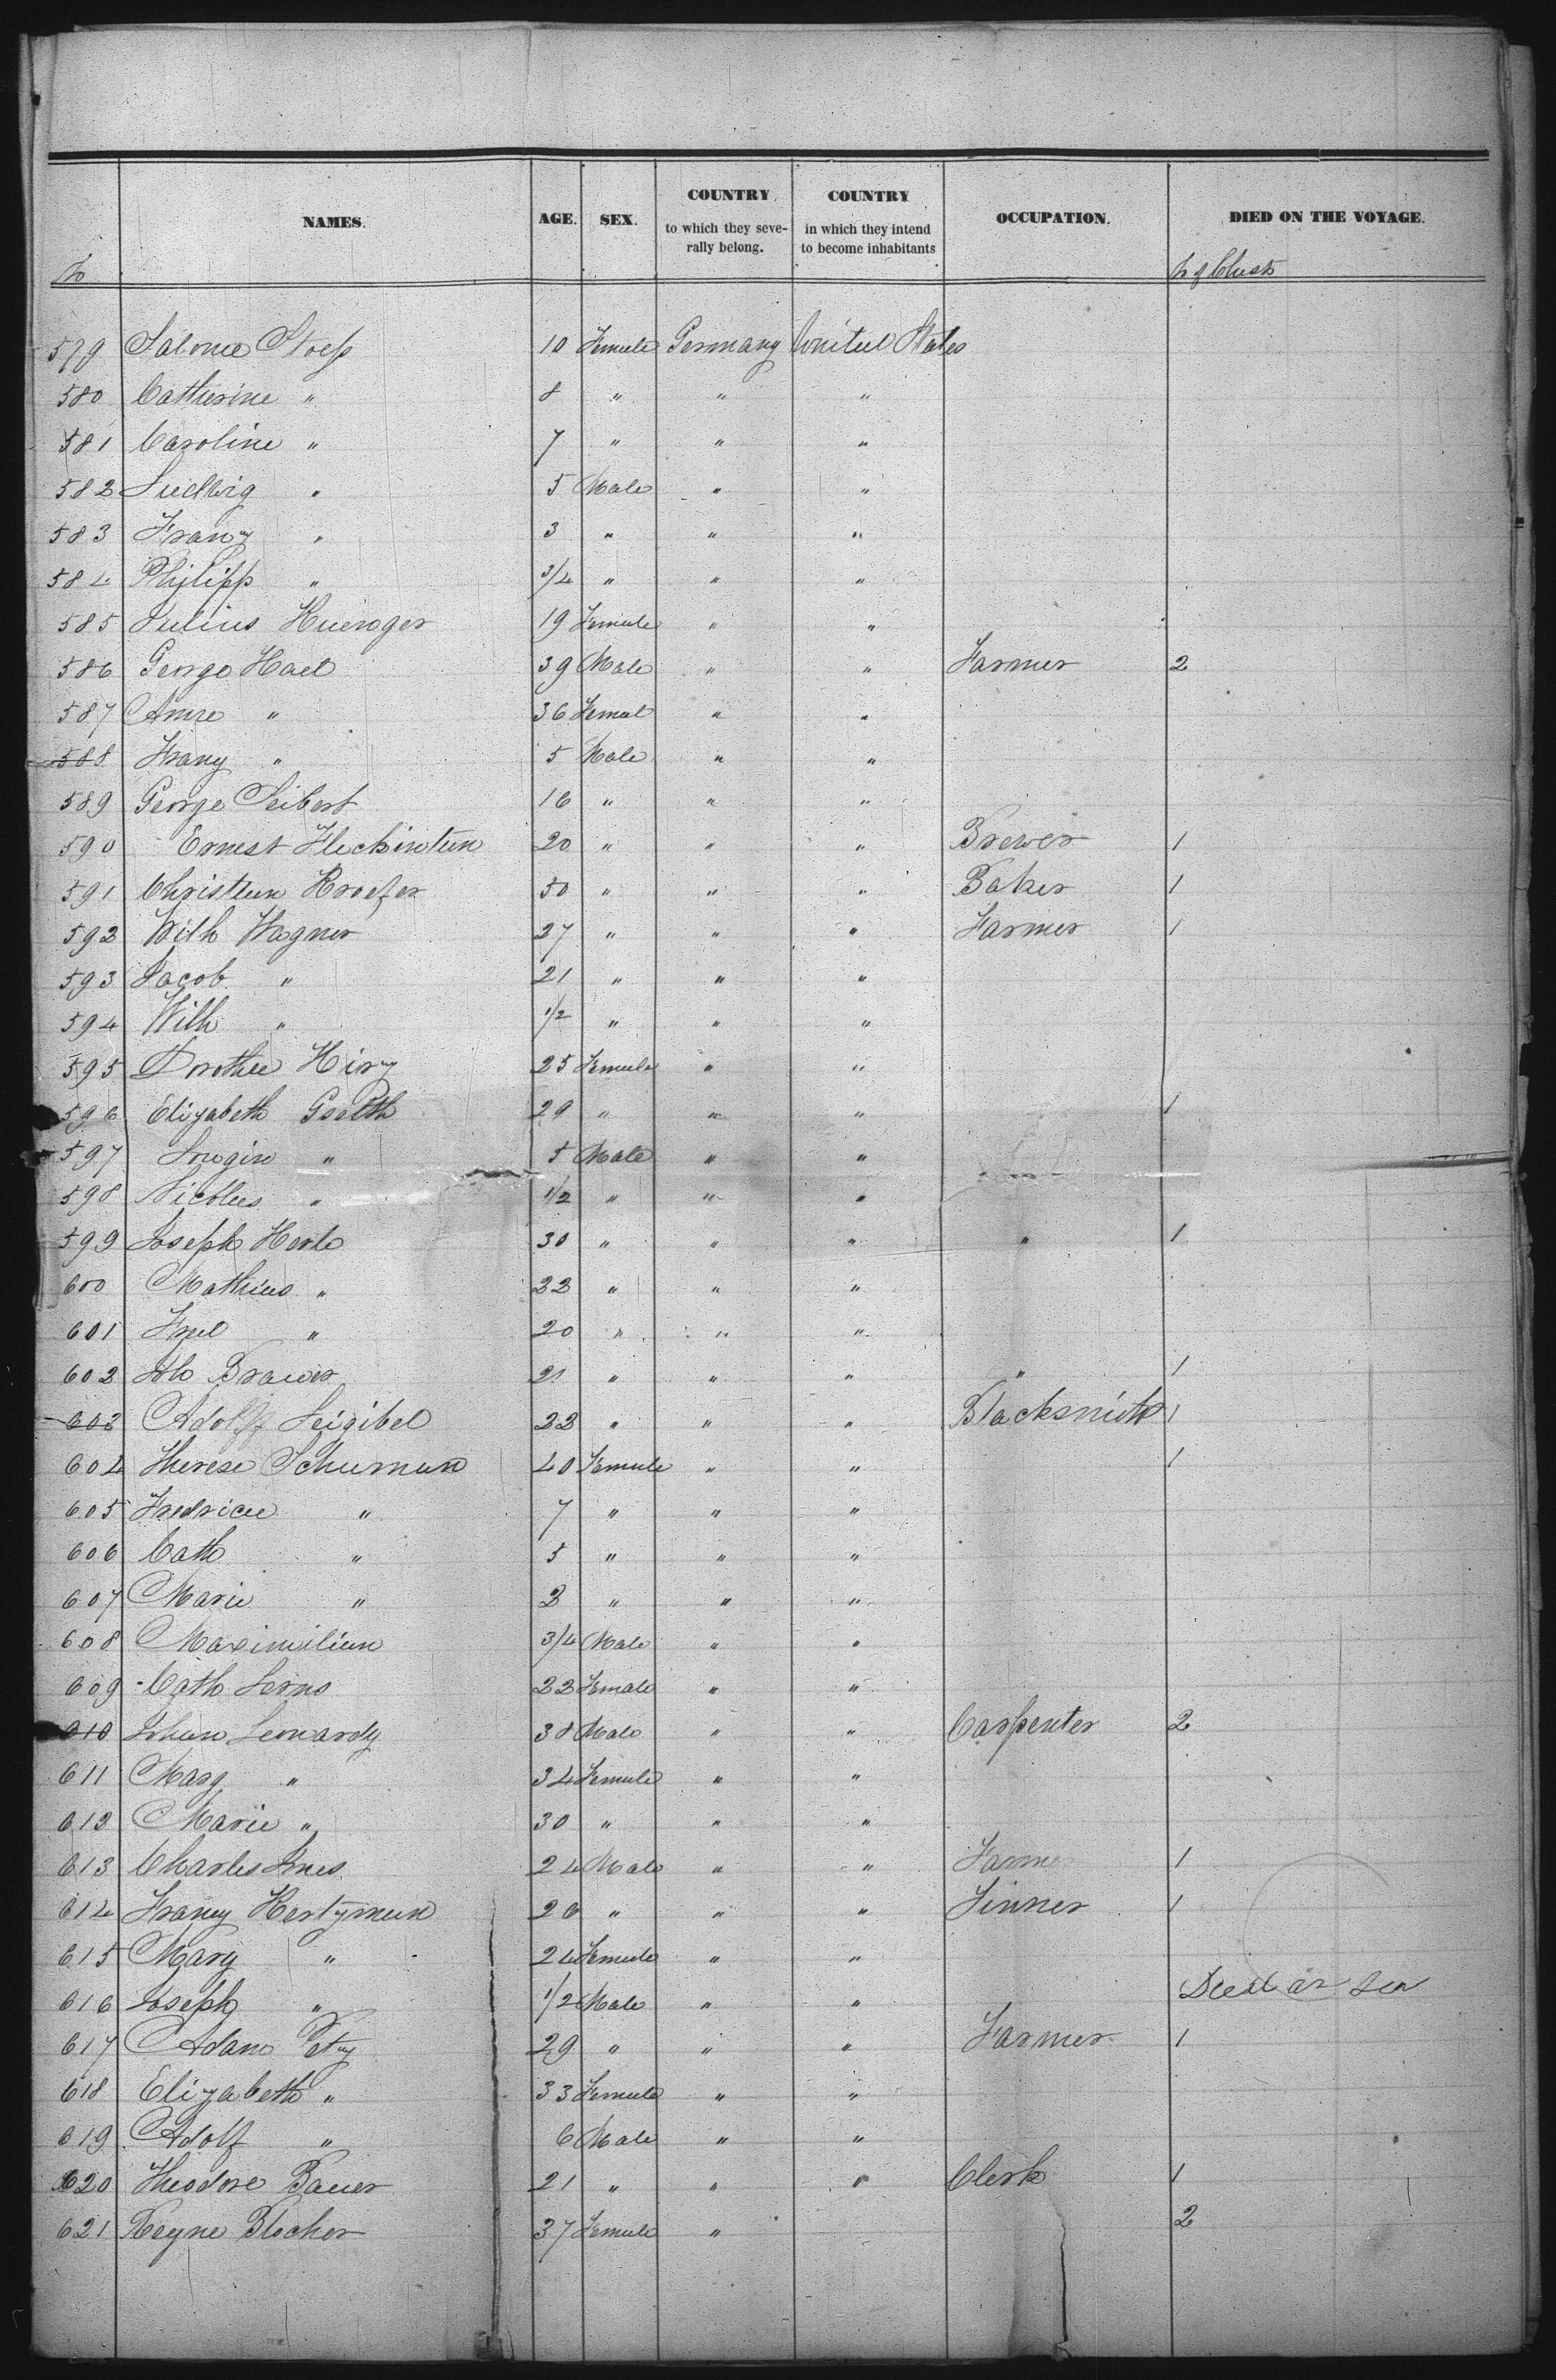 No NAMES. AGE. SEX. COUNTRY to which they severally belong. COUNTRY in which they intend to become inhabitants OCCUPATION. DIED ON THE VOYAGE.
579 Salomea Stoess 10 Female Germany United States
580 Catherine " 8 " " "
581 Caroline " 7 " " "
582 Ludwig " 5 Male " "
583 Franz " 3 " " "
584 Philipp " 3/4 " " "
585 Julius 19 Female " "
586 George Hael 39 Male " " Farmer 2
587 Anne " 36 Femal " "
588 Franz " 5 Male " "
589 George Seibert 16 " " "
590 Ernest 20 " " " Brewer 1
591 Christian 50 " " " Baker 1
592 Wilh Wagner 27 " " " Farmer 1
593 Jacob " 21 " " "
594 Wilh " 1/2 " " "
595 Dorothee Hirz 25 Female " "
596 Elizabeth 29 " " " 1
597 " 5 Male " "
598 Nicolus " 1/2 " " "
599 Joseph Herle 30 " " " " 1
600 Mathias " 22 " " "
601 Fred " 20 " " "
602 Joh 21 " " " " 1
603 Adolff Leigibel 22 " " " Blacksmith 1
604 Therese Schuman 40 Female " " 1
605 Fredricee " 7 " " "
606 Cath " 5 " " "
607 Marie " 2 " " "
608 Maximilian 3/4 Male " "
609 Cath 22 Female " "
610 Johan Leonardy 38 Male " " Carpenter 2
611 Marg " 34 Female " "
612 Marie " 30 " " "
613 Charles 24 Male " " Farmer 1
614 Franz Hertzman 26 " " " 1
615 Mary " 24 Female " "
616 Joseph " 1/2 Male " " Died at Sea
617 Adam Petry 29 " " " Farmer 1
618 Elizabeth " 33 Female " "
619 Adolf " 6 Male " "
620 Theodore Bauer 21 " " " Clerk 1
621 Blocher 37 Female " 2